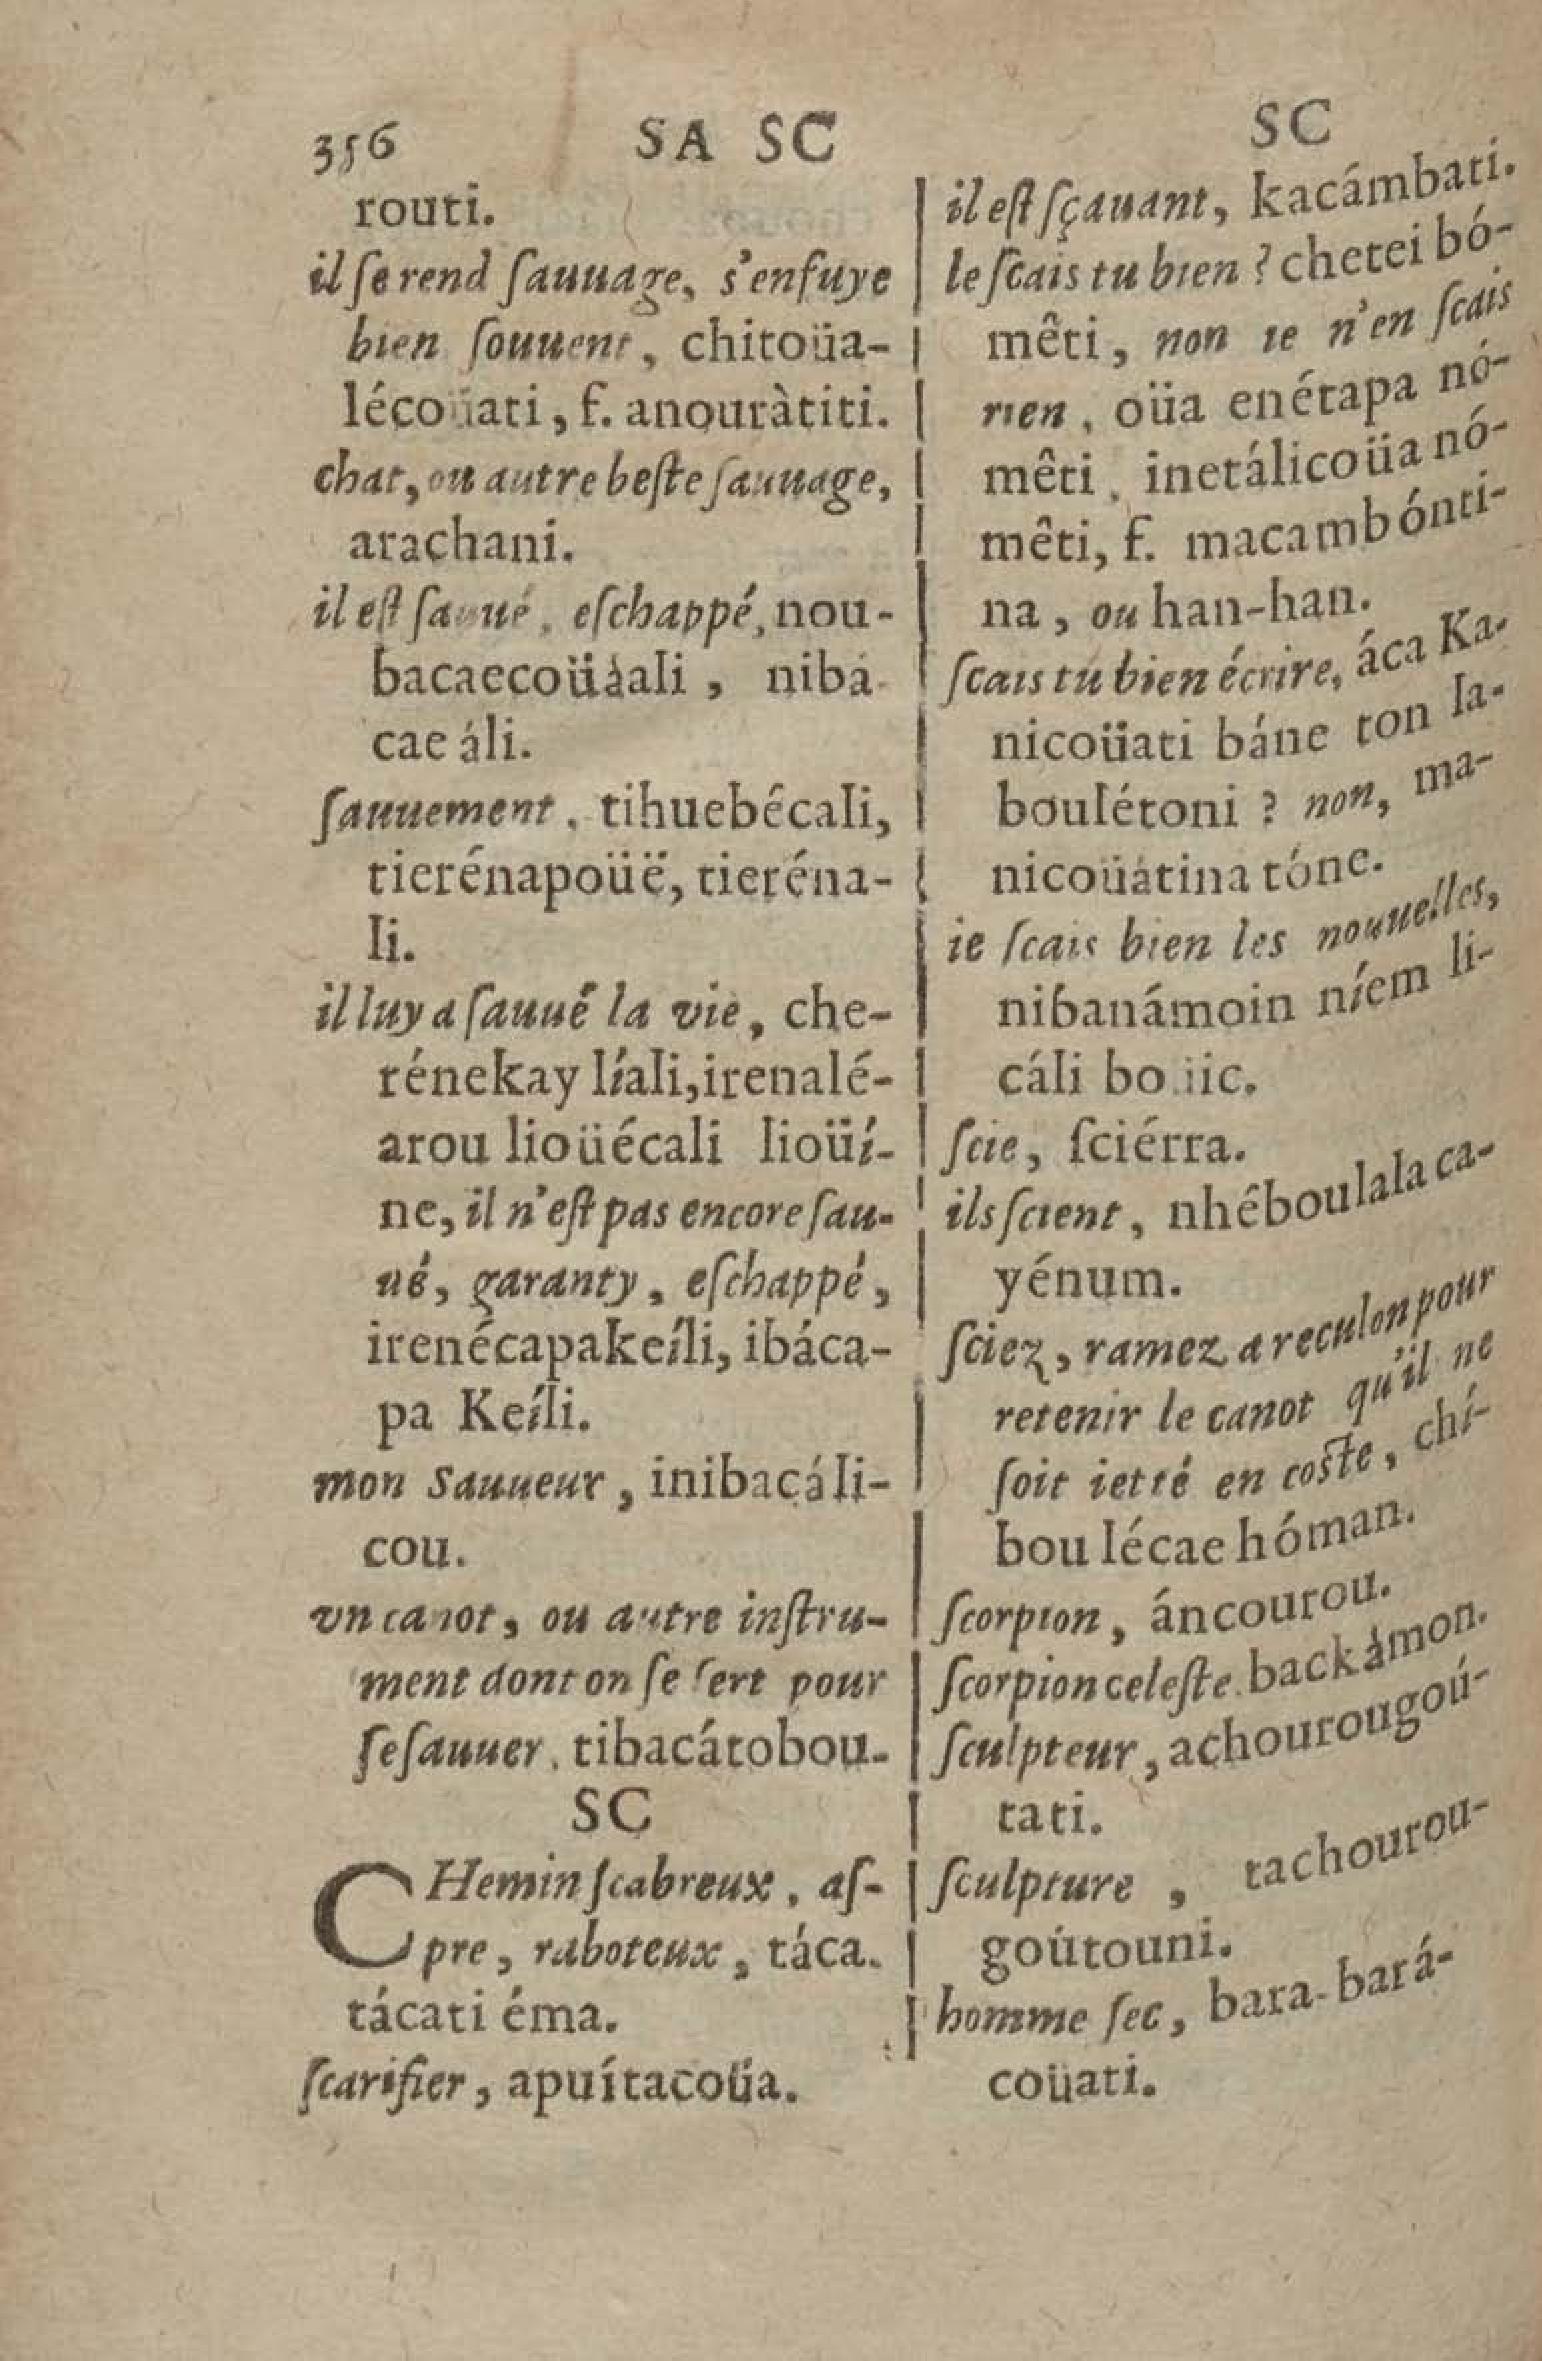 356 SA SC
SC
routi.
il ſe rend ſauuage, s'enfuye
bien ſouuent, chitoüa-
lécoüati, f. anouràtiti.
chat, ou autre beſte ſauuage,
arachani.
il eſt ſauué, eſchappé, nou-
bacaecoüàali, nibá-
cae áli.
ſauuement, tihuebécali,
tierénapoüë, tieréna-
li.
il luy a ſauué la vie, che-
rénekay líali, irenalé-
arou lioüécali lioüí-
ne, il n'eſt pas encore ſau-
ué, garanty, eſchappé,
irenécapakeíli, ibáca-
pa Keíli.
mon Sauueur, inibacáli-
cou.
vn canot, ou autre inſtru-
ment dont on ſe ſert pour
ſe ſauuer, tibacátobou.
SC
CHemin ſcabreux, aſ-
pre, raboteux, táca.
tácati éma.
ſcarifier, apuítacoüa.
il eſt ſçauant, kacámbati.
le ſcais tu bien ? chetei bó-
mêti, non ie n'en ſcais
rien, oüa enétapa nó-
mêti, inetálicoüa nó-
mêti, f. macambónti-
na, ou han-han.
ſcais tu bien écrire, áca Ka-
nicoüati báne ton la-
boulétoni ? non, ma-
nicoüátina tóne.
ie ſcais bien les nouuelles,
nibanámoin níem li-
cáli
ſcie, ſciérra.
ils ſcient, nhéboulala ca-
yénum.
ſciez, ramez a reculon pour
retenir le canot qu'il ne
ſoit ietté en coſte, chí-
bou lécae hóman.
ſcorpion, áncourou.
ſcorpion celeſte. backàmon.
ſculpteur, achourougoú-
tati.
ſculpture, tachourou-
goútouni.
homme ſec, bara-bará-
coüati.